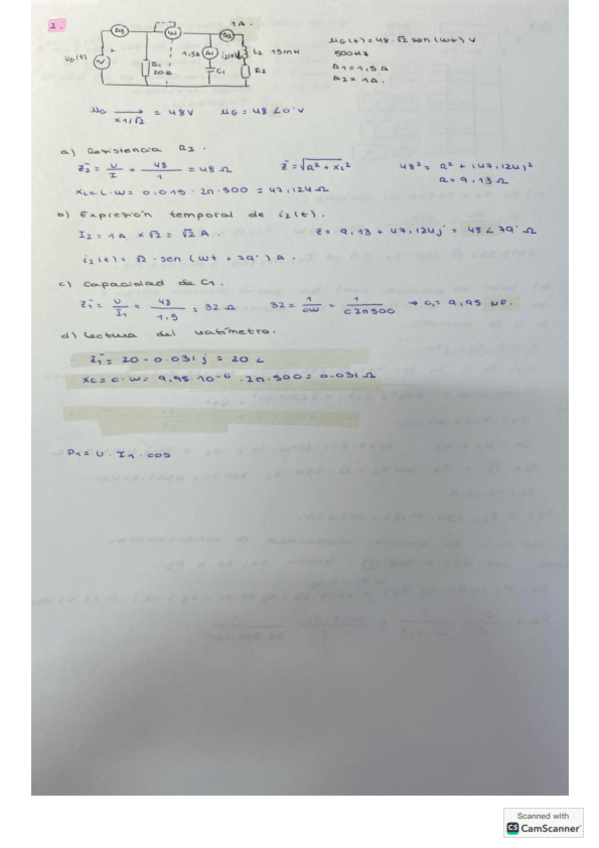 1.
1A.
A3
W
A2
uG(t)
+
V
R1
20Ω
1,5A
A1
i2(t)
L2 15mH
C1
R2
uG(t) = 48·√2 sen(wt) V
500Hz
A1 = 1,5 A
A2 = 1A.
uG x1/√2 = 48V uG = 48∠0° V
a) Resistencia R2.
Z2 = U/I = 48/1 = 48 Ω Z = √R²+XL² 48² = R² + (47,124)²
XL = L·W = 0.015·2π·500 = 47,124Ω R = 9,13 Ω
b) Expresión temporal de i2(t).
I2 = 1A x√2 = √2 A. Z = 9,13 + 47,124j = 48∠79° Ω
i2(t) = √2·sen(wt + 79°) A.
c) Capacidad de C1.
Z1 = U/I1 = 48/1.5 = 32 Ω 32 = 1/CW = 1/C2π500 → C1 = 9,95 µF.
d) Lectura del vatímetro.
Z1 = 20 - 0.031j = 20∠
XC = C·W = 9,95·10⁻⁶·2π·500 = 0.031Ω
P1 = U·I1·cos
Scanned with
CS CamScanner